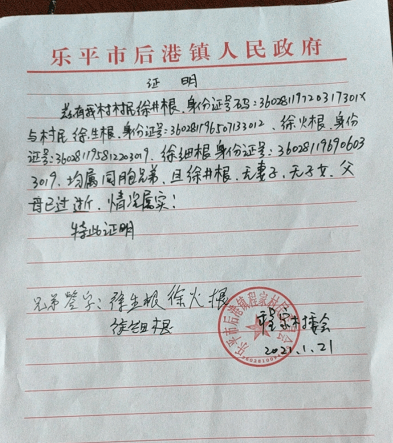 乐平市后港镇人民政府
证 明
兹有我村村民徐井根,身份证号码:36028119720317301X
与村民徐生根,身份证号:360281196507133012、徐火根,身份
证号:360281195812203019、徐细根身份证号:36028119690603
3019,均属同胞兄弟,且徐井根,无妻子,无子女,父
母已过逝,情况属实!
特此证明
兄弟签字:徐生根 徐火根
徐细根
乐平市后港镇程家村
程家村委会
2021.1.21